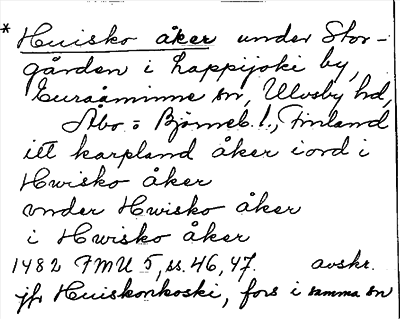 * Huisko åker under Stor-
gården i Lappijoki by,
Euraåminne sn, Ulvsby hd,
Åbo = Björneb. l., Finland
itt karpland åker iord i
Hwisko åker
vnder Hwisko åker
i Hwisko åker
1482 FMU 5, ss. 46, 47. avskr.
jfr Huiskonkoski, fors i samma sn